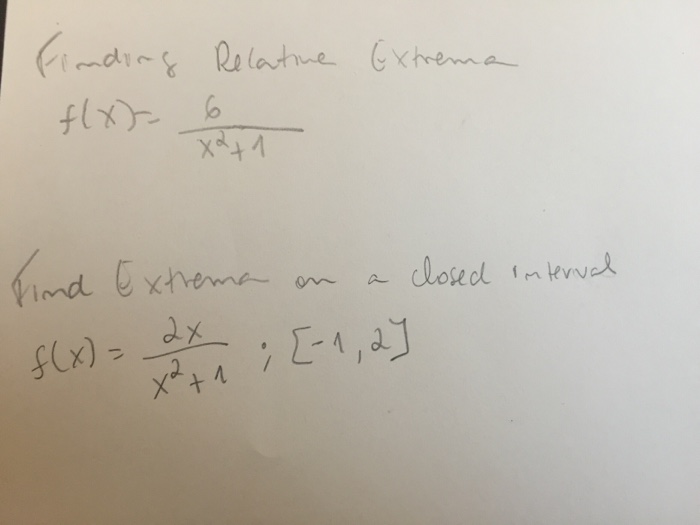 Finding Relative Extrema
f(x) = 6/(x²+1)
Find Extrema on a closed interval
f(x) = 2x/(x²+1) ; [-1, 2]